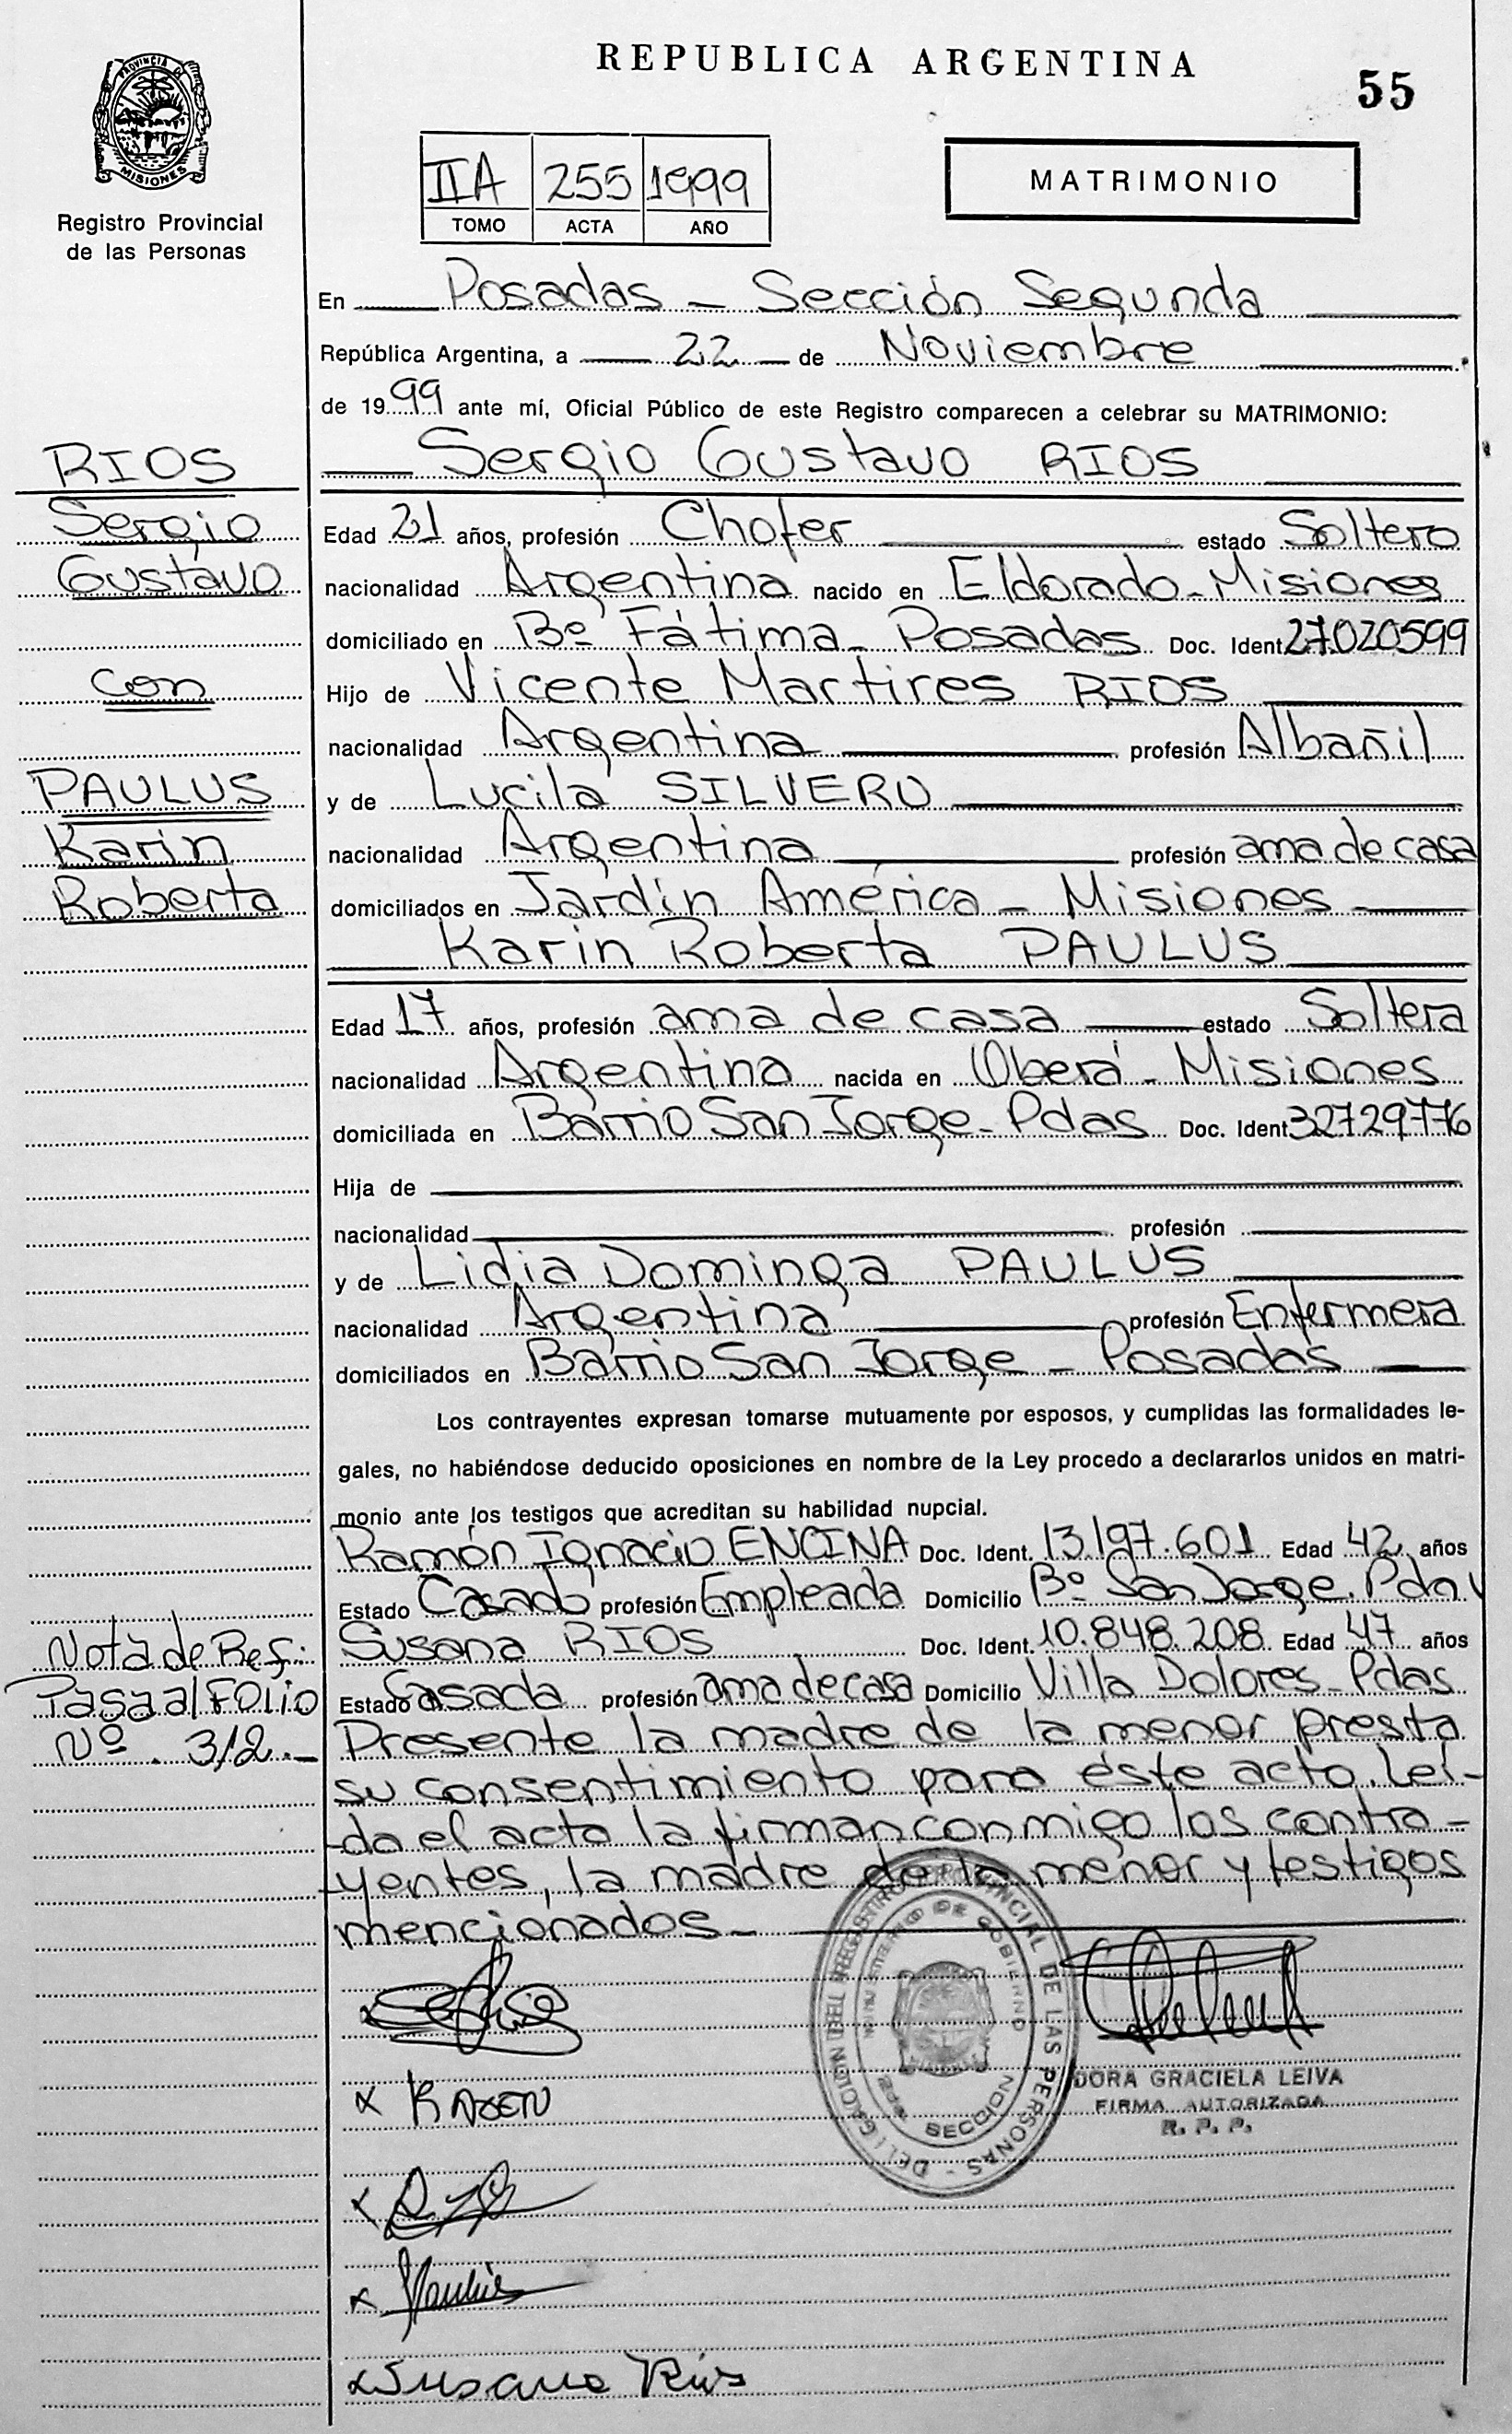 REPUBLICA ARGENTINA
55
PROVINCIA DE
MISIONES
Registro Provincial
de las Personas
IIA 255 1999
TOMO ACTA AÑO
MATRIMONIO
En Posadas - Sección Segunda
República Argentina, a 22 de Noviembre
de 1999 ante mí, Oficial Público de este Registro comparecen a celebrar su MATRIMONIO:
RIOS
Sergio
Gustavo
con
PAULUS
Karin
Roberta
Sergio Gustavo RIOS
Edad 21 años, profesión Chofer estado Soltero
nacionalidad Argentina nacido en Eldorado - Misiones
domiciliado en Bº Fátima - Posadas Doc. Ident 27.020599
Hijo de Vicente Martires RIOS
nacionalidad Argentina profesión Albañil
y de Lucila SILVERO
nacionalidad Argentina profesión ama de casa
domiciliados en Jardín América - Misiones
Karin Roberta PAULUS
Edad 17 años, profesión ama de casa estado Soltera
nacionalidad Argentina nacida en Oberá - Misiones
domiciliada en Barrio San Jorge - Pdas Doc. Ident 32729776
Hija de
nacionalidad profesión
y de Lidia Dominga PAULUS
nacionalidad Argentina profesión Enfermera
domiciliados en Barrio San Jorge - Posadas
Los contrayentes expresan tomarse mutuamente por esposos, y cumplidas las formalidades le-
gales, no habiéndose deducido oposiciones en nombre de la Ley procedo a declararlos unidos en matri-
monio ante los testigos que acreditan su habilidad nupcial.
Ramón Ignacio ENCINA Doc. Ident. 13.197.601 Edad 42 años
Estado Casado profesión Empleada Domicilio Bº San Jorge.
Susana RIOS Doc. Ident. 10.848.208 Edad 47 años
Estado Casada profesión ama de casa Domicilio Villa Dolores - Pdas
Nota de Ref:
Pasa al FOLIO
Nº . 312.-
Presente la madre de la menor presta
su consentimiento para éste acto. Leí-
da el acta la firman conmigo los contra-
yentes, la madre de la menor y testigos
mencionados -
DELEGACION DEL REGISTRO PROVINCIAL DE LAS PERSONAS -
MINISTERIO DE GOBIERNO
SECCION 2da
DORA GRACIELA LEIVA
FIRMA AUTORIZADA
R. P. P.
x Susana Rios